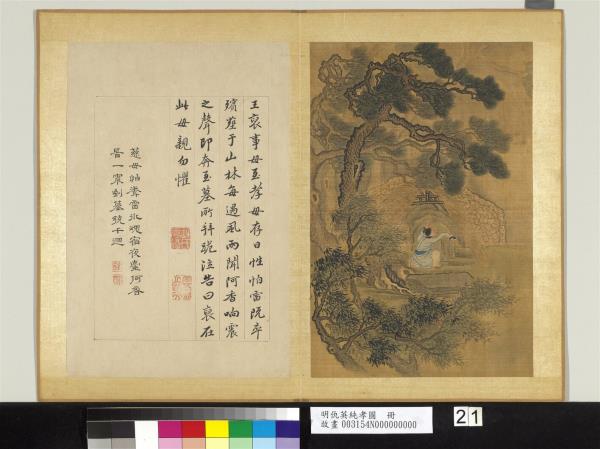 王裒事母至孝母存日性怕雷既卒
殯塟于山林每遇風雨聞阿香响震
之聲即奔至墓所拜跪泣告曰裒在
此母親勿懼
慈母怕聞雷冰魂宿夜臺阿香
時一震到墓遶千迴
明仇英純孝圖 冊
故畫 003154N000000000
21